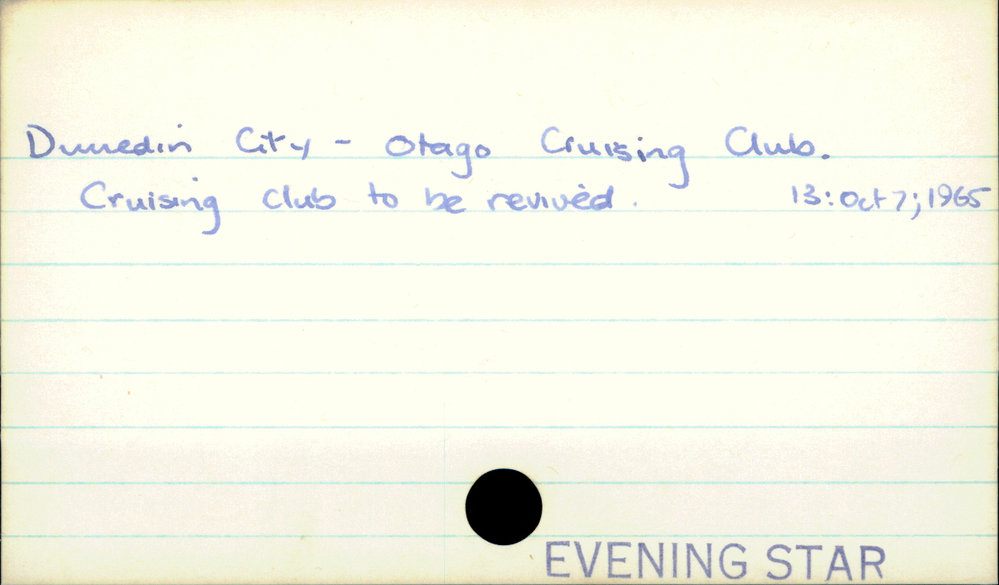 Dunedin City - Otago Cruising Club.
Cruising club to be revived. 13: Oct 7; 1965
EVENING STAR